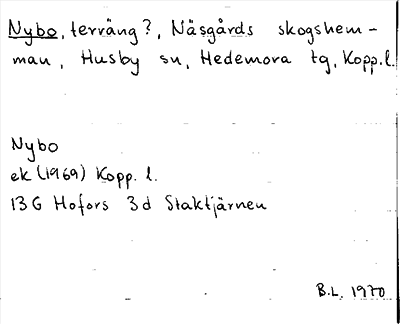 Nybo, terräng?, Näsgårds skogshem-
man, Husby sn, Hedemora tg, Kopp.l.
Nybo
ek (1969) Kopp. l.
13G Hofors 3d Staktjärnen
B.L. 1970